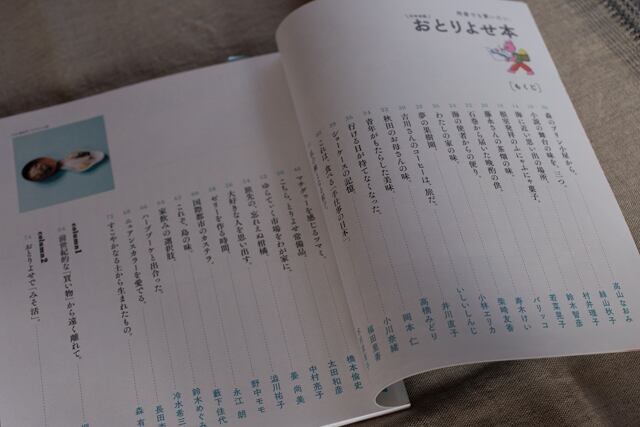 何度でも買いたい。
おとりよせ本
[もくじ]
森のプリン小屋から。 高山なおみ
小説の舞台の味を、三つ。 緑山秋子
海に近い思い出の場所。 村井理子
根室発祥のふにゃふにゃ菓子。 鈴木智彦
藤永さんの茶畑の味。 若菜晃子
石巻から届いた晩酌の供。 パリッコ
海の使者からの便り。 寿木けい
わたしの家の味。 柴崎友香
夢の果樹園。 小林エリカ
吉川さんのコーヒーは、旅だ。 いしいしんじ
秋田のお母さんの味。 井川直子
青年がもたらした美味。 高橋みどり
行ける日が待てなくなった。 岡本仁
シャトーアールの記憶。 小川奈緒
これは、食べる“手仕事の日本”。 福田里香
ナチュールを感じるツマミ。 橋本倫史
こちら、とりよせ常備品。 太田和彦
ゆらてぃく市場をわが家に。 中村亮子
旅先の、忘れえぬ柑橘。 姜尚美
大好きな人を思い出す。 澁川祐子
ゼリーを作る時間。 野中モモ
国際都市のカステラ。 永江朗
これぞ、島の味。 藪下佳代
家飲みの選択肢。 鈴木めぐみ
ハーブワーケと出合った。 冷水希三
ニュアンスカラーを愛でる。 長田
すこやかなる土から生まれたもの。 森有
column1
前世紀的な「買い物」から遠く離れて。
column2
おとりよせで「みそ活」。